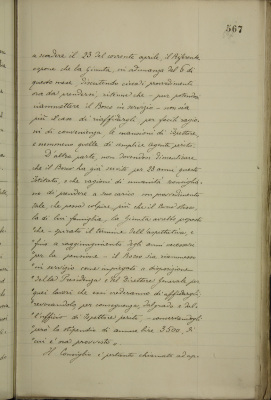 567
a scadere il 23 del corrente aprile, il Referente
espone che la Giunta, in adunanza del 6 di
questo mese, discutendo circa i provvedimenti
ora da prendersi, ritenne che - pur potendosi
riammettere il Bosco in servizio - non sia
più il caso di riaffidargli, per facili ragio,
ni di convenienza, le mansioni di Ispettore,
e nemmeno quelle di semplice agente
D'altra parte, non dovendosi dimenticare
che il Bosco ha già servito per 23 anni questo
Istituto, e che ragioni di umanità consiglia,
no di prendere a suo carico un provvedimento
tale che possa colpire più che il Bosco stesso,
la di lui famiglia, la Giunta avrebbe proposto
che - spirato il termine dell'aspettativa, e
fino a raggiungimento degli anni necessari
per la pensione - il Bosco sia riammesso
in servizio come impiegato a disposizione
della Presidenza e del Direttore Generale per
quei lavori che essi crederanno di affidargli,
revocandolo per conseguenza, dal grado e del,
l'ufficio di Ispettore perito, - conservandogli
però lo stipendio di annue lire 3500, di
cui è ora provvisto.
Il Consiglio è pertanto chiamato ad ap